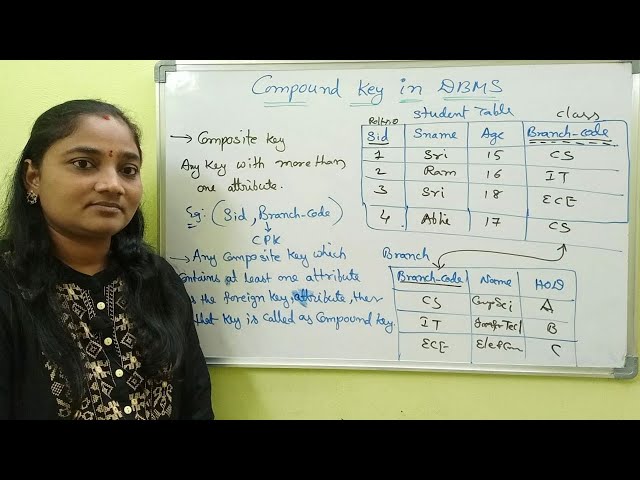 Compound Key in DBMS
→ Composite key
Any key with more than
one attribute.
Eg: (Sid, Branch-Code)
↓
CPK
→ Any Composite key which
contains at least one attribute
is the foreign key attribute, then
that key is called as Compound key.
Student Table class
Rollno
Sid Sname Age Branch-code
1 Sri 15 CS
2 Ram 16 IT
3 Sri 18 ECE
4 Abhi 17 CS
Branch
Branch-code Name HOD
CS CompSci A
IT B
ECE C